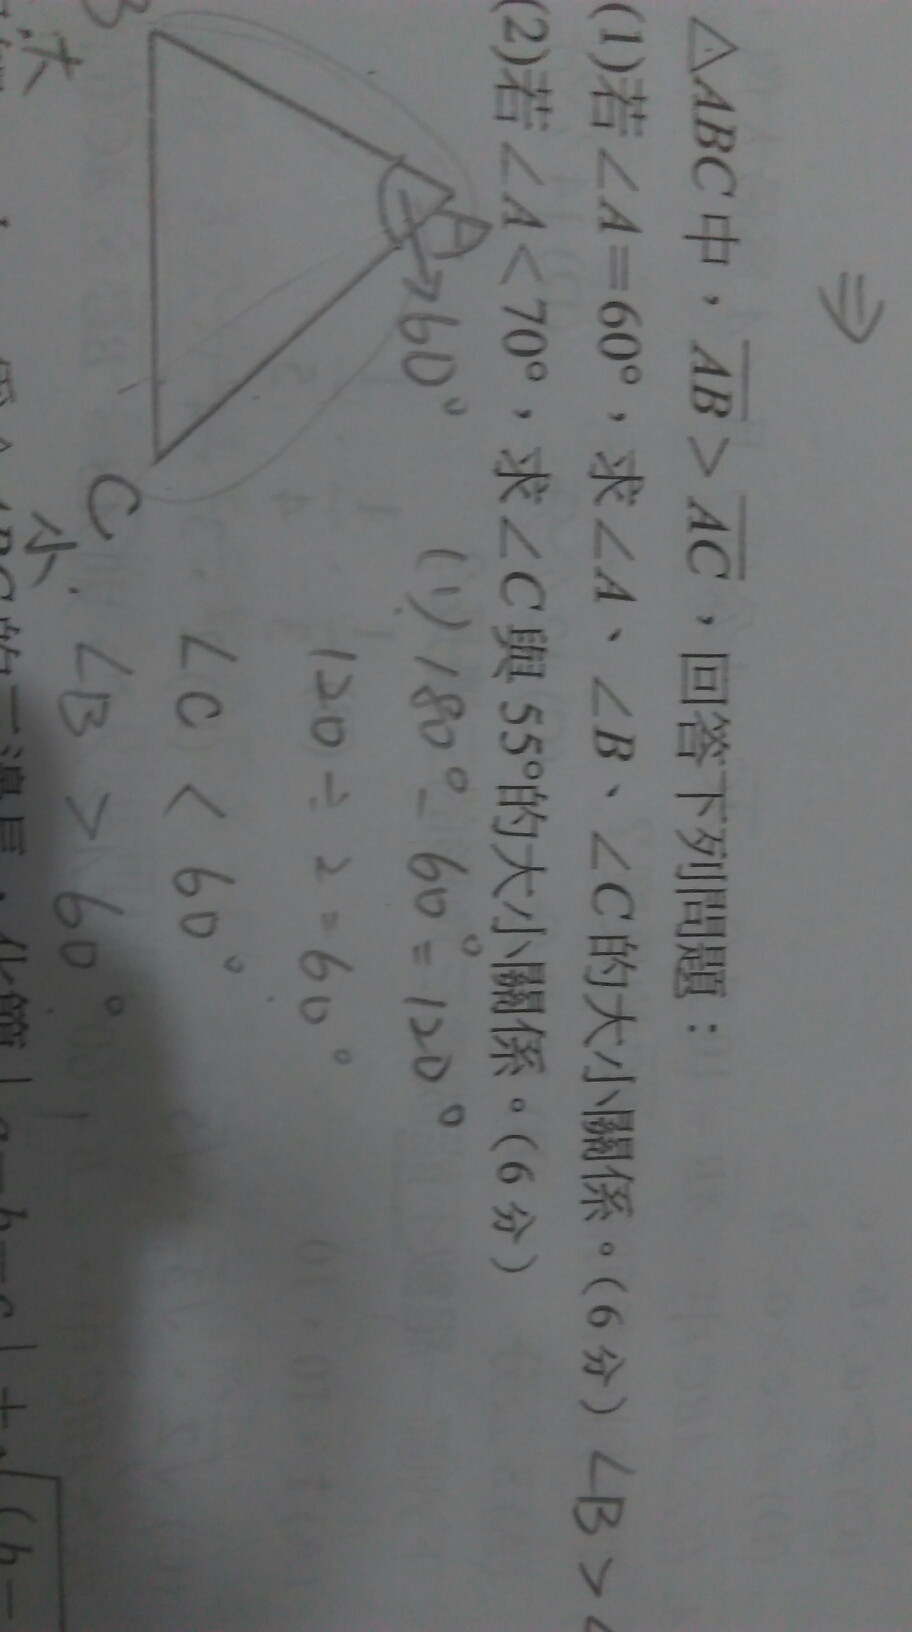 ⇒
△ABC中，AB>AC，回答下列問題：
(1)若∠A=60°，求∠A、∠B、∠C的大小關係。(6分) ∠B >
(2)若∠A<70°，求∠C與55°的大小關係。(6分)
A
→60°
B
C
大
小
(1) 180° - 60° = 120°
120 ÷ 2 = 60°
∠C < 60°
∠B > 60°
的三邊長，化簡|a-b-c|+√(b-